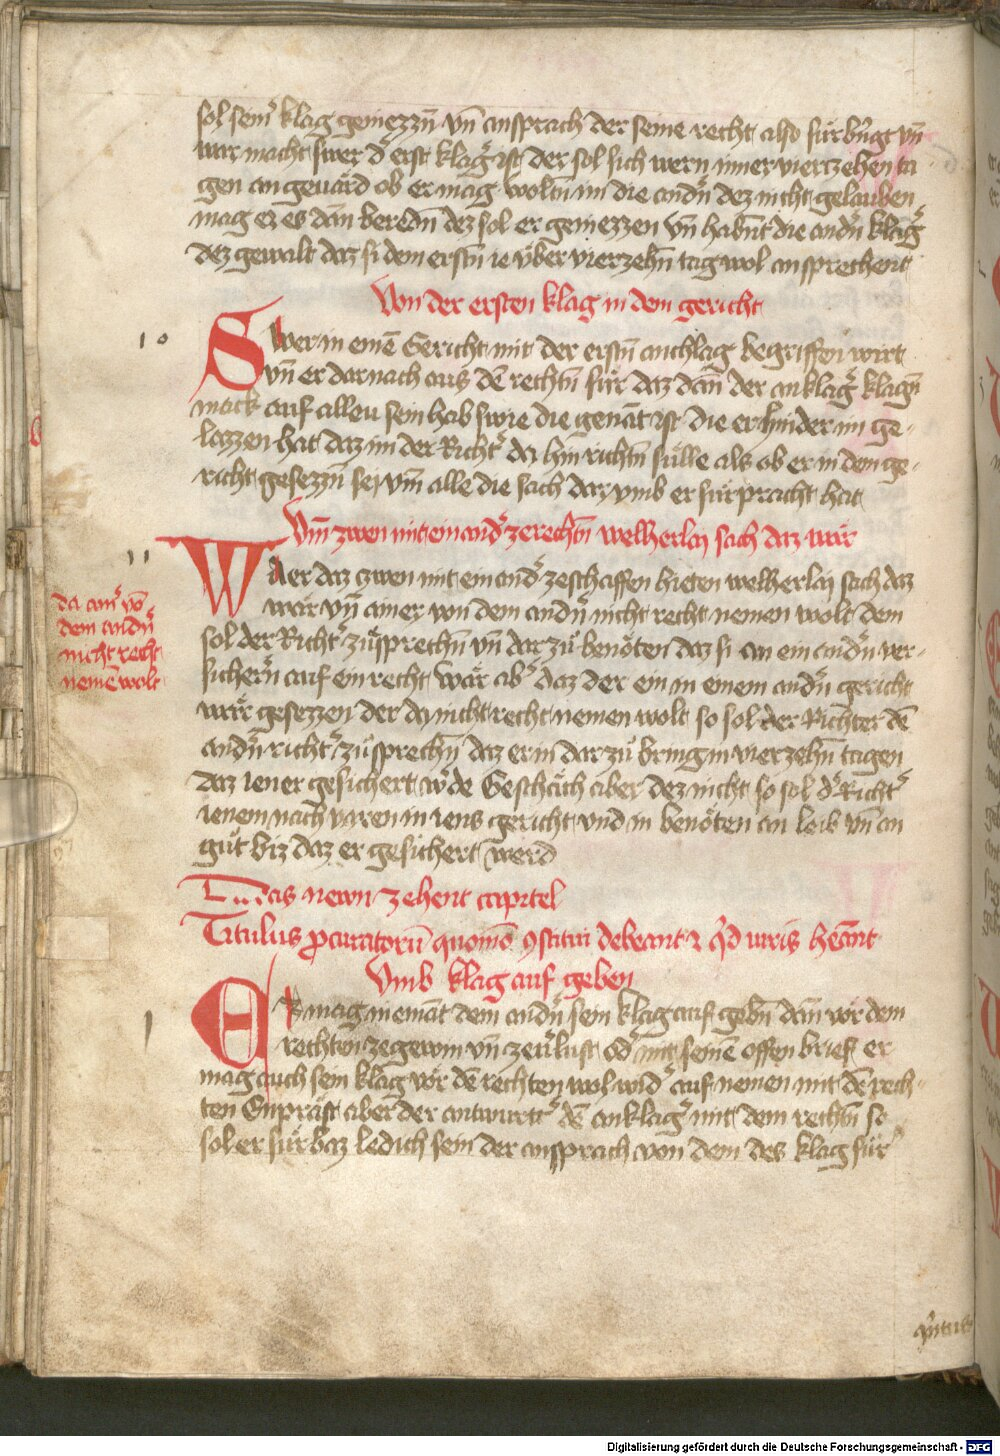 sol seinˀ klag geniezzn̄ vn̄ ansprach der seine recht also fürbringt vn̄
war macht swer dˀ erst klagˀ ist der sol sich wern inner viertzehen ta
gen an geuärd ob er mag woltn̄ im die andˀn dez nicht gelauben
mag er es dan̄ beredn̄ dez sol er geniezzen vn̄ habnt die andˀn klagˀ
dez gewalt daz si dem erstn̄ ie vber vierzehn̄ tag wol ansprechent
Von der ersten klag in dem gericht
10
Swer in einē Gericht mit der erstn̄ anchlag begriffen wirt
vn̄ er darnach aus dē rechtn̄ für daz dan̄ der anklagˀ klagn̄
mack auf alleu sein hab swie die genāt ist die er hinder im ge-
lazzen hat daz im der Richtˀ da hin richtn̄ sülle als ob er in dem ge-
richt gesezzn̄ sej vm̄ alle die sach dar vmb er fürpracht hat
Vm̄ zwen mit einandˀ zerechtn̄ welherlaj sach daz wär
11
WAer daz zwen mit einandˀ zeschaffen hieten welherlaj sach daz
wär vn̄ ainer von dem andˀn nicht recht nemen wolt dem
da ainˀ vō
dem andˀn
nicht recht
nemē wolt
sol der Richtˀ zůsprechn̄ vn̄ dar zů benöten daz si an ein andˀn ver-
sichern̄ auf ein recht Wär abˀ daz der ein in einem andˀn gericht
wär gesezzen der da nicht recht nemen wolt so sol der Richter dē
andˀn richtˀ zůsprechn̄ daz er in dar zů bring in vierzehn̄ tagen
daz iener gesichert wˀde Geschäch aber dez nicht so sol dˀ Richtˀ
ienem nach varen in iens gericht vnd in benöten an leib vn̄ an
gůt biz daz er gesichert werd
Daas newnzehent capitel
Titulus ꝓcuratorū quomō ꝯstitui debeant ⁊ qͥd iuris heāt
Vmb klag auf geben
1
Ez mag niemāt dem andˀn sein klag auf gebn̄ dan̄ vor dem
rechten ze gewin vn̄ ze vˀlust odˀ mit seinē offen brief er
mag auch sein klag vor dē rechten wol widˀ auf nemen mit dē rech-
ten Enpräst aber der antwurtˀ dē anklagˀ mit dem rechtn̄ so
sol er fürbaz ledich sein der ansprach von dem des klag für
Digitalisierung gefördert durch die Deutsche Forschungsgemeinschaft - DFG